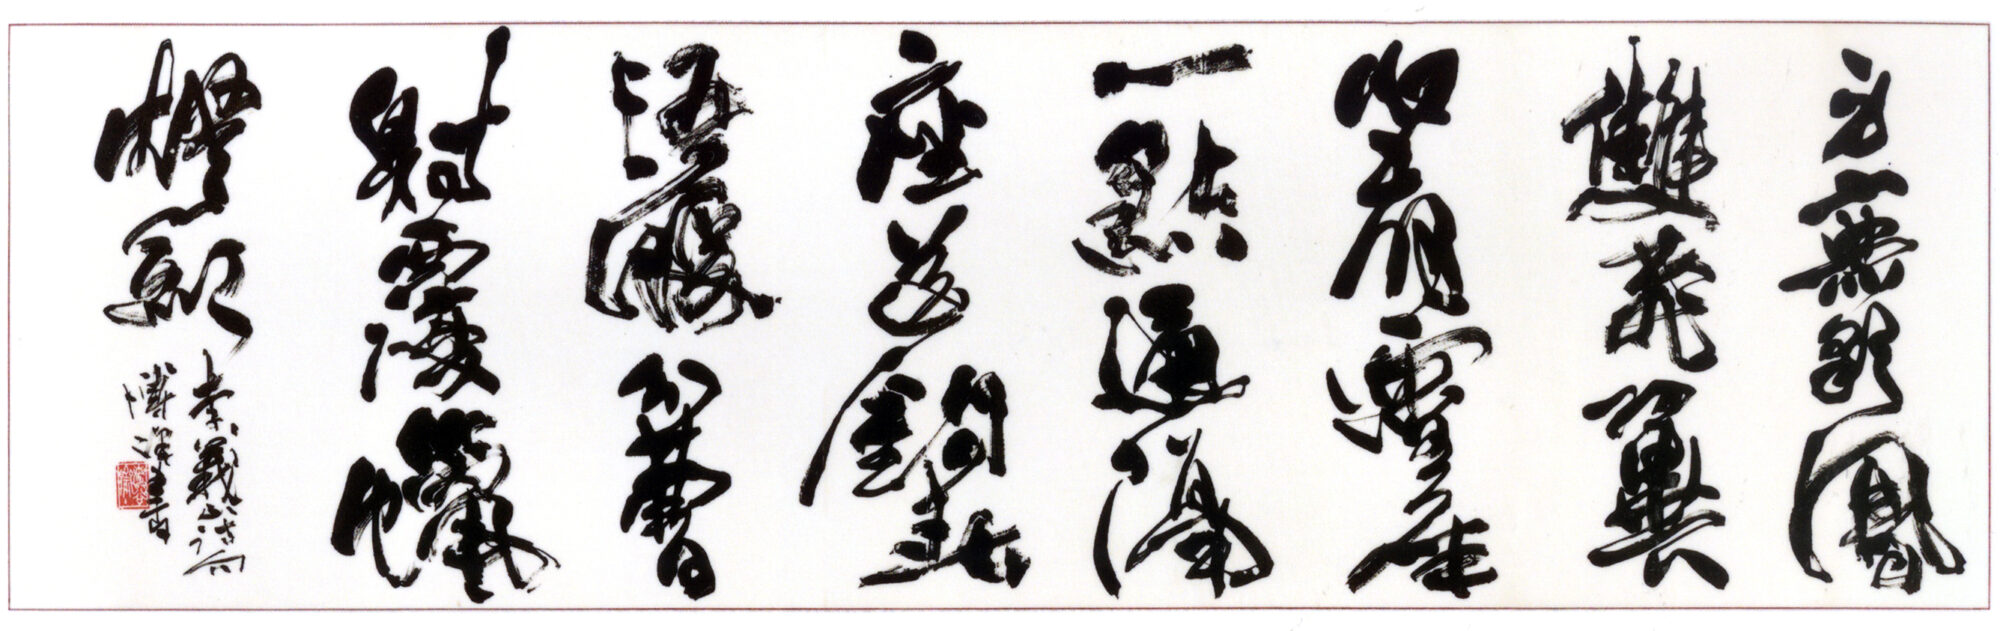 身無彩鳳
雙飛翼
心有靈犀
一點通隔
座送鉤春
酒暖分曹
射覆蠟
燈紅
李義山詩句
書